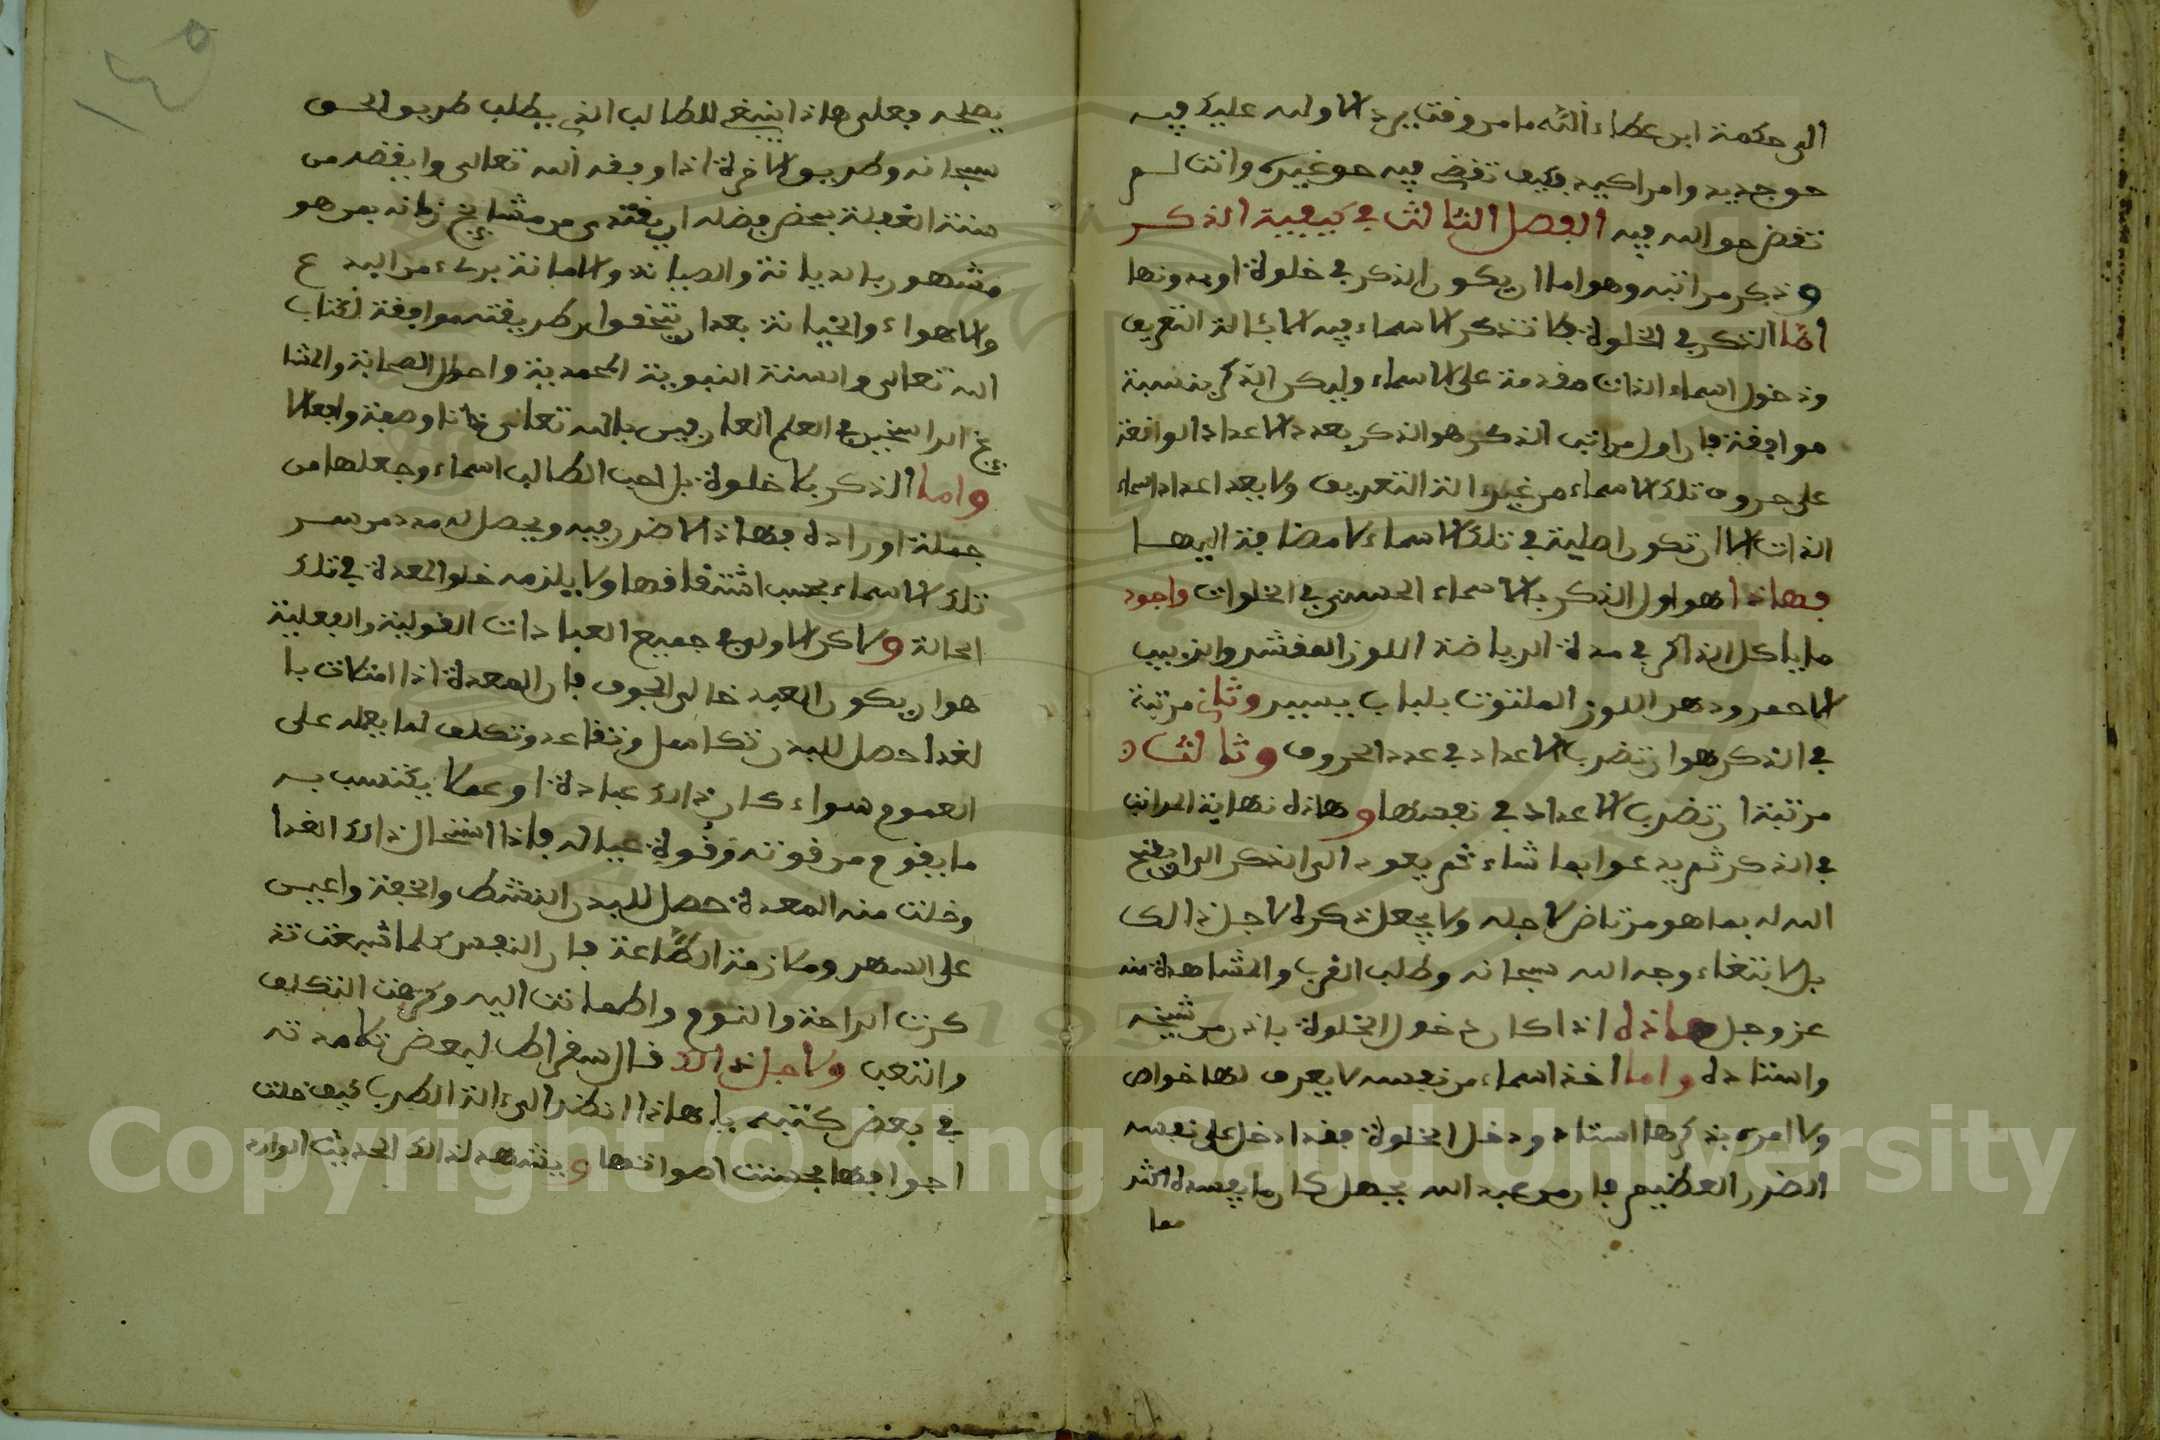 الى حكمة ابن عطاء الله ما من وقت يرد الا وله عليك فيه
حق جديد وامر اكيد فكيف تقضي فيه حق غيره وانت لم
تقض حق الله فيه الفصل الثالث في كيفية الذكر
وذكر مراتبه وهو اما ان يكون الذكر في خلوة او بدونها
اما الذكر في الخلوة فلا تذكر الاسماء فيه الا بئالة التعريف
ودخول اسماء الذات مقدمة على الاسماء وليكن الذكر بنسبة
موافقة فان اول مراتب الذكر هو الذكر بعدد الاعداد الواقعة
على حروف تلك الاسماء من غير ءالة التعريف ولا بعد اعداد اسماء
الذات الا ان تكون اصلية في تلك الاسماء لا مضافة اليها
فهاذا هو اول الذكر بالاسماء الحسنى في الخلوات واجود
ما ياكل الذاكر في مدة الرياضة اللوز المقشر والزبيب
الاحمر ودهن اللوز الملتوت بلباب يسير وثاني مرتبة
في الذكر هو ان تضرب الاعداد في عدد الحروف وثالث
مرتبة ان تضرب الاعداد في نفسها وهاذه نهاية المراتب
في الذكر ثم يدعوا بما شاء ثم يعود الى الذكر الى ان يفتح
الله له بما هو مرتاض لاجله ولا يجعل ذكره لاجل ذالك
بل لابتغاء وجه الله سبحانه وطلب القرب والمشاهدة منه
عز وجل هاذه اذا كان دخول الخلوة باذن من شيخه
واستاذه واما اخذ اسماء من نفسه لا يعرف لها خواص
ولا امره بذكرها استاذ ودخل الخلوة فقد ادخل على نفسه
الضرر العظيم فان من عبد الله بجهل كان ما يفسده اكثر
مما
١٤٥
يصلحه فعلى هاذا ينبغي للطالب الذي يطلب طريق الحق
سبحانه وطريق الاخرة اذا وفقه الله تعالى وايقضه من
سنة الغفلة بمحض فضله ان يقتدي من مشايخ زمانه بمن هو
مشهور بالديانة والصيانة والامانة بريء من البدع
والاهواء والخيانة بعد ان يتحقق ان طريقته موافقة لكتاب
الله تعالى والسنة النبوية المحمدية واحوال الصحابة والمشا
يخ الراسخين في العلم العارفين بالله تعالى ذاتا وصفة وافعالا
واما الذكر بلا خلوة بل احب الطالب اسماء وجعلها من
جملة اوراده فهاذا لا ضرر فيه ويحصل له مدد من سر
تلك الاسماء بحسب اشتقاقها ولا يلزمه خلو المعدة في تلك
الحالة ولاكن الاولى في جميع العبادات القولية والفعلية
هو ان يكون العبد خالي الجوف فان المعدة اذا امتلات با
لغدا حصل للبدن تكاسل وتقاعد وتكلف لما يفعله على
العموم سواء كان ذالك عبادة او عملا يكتسب به
ما يقوم من قوته وقوة عياله فاذا استحال ذالك الغدا
وخلت منه المعدة حصل للبدن النشط والخفة واعين
على السهر وملازمة الطاعة فان النفس كلما شبعت تذ
كرت الراحة والنوم واطمانت اليه وكرهت التكلف
والتعب ولاجل ذالك قال سقراط لبعض تلامذته
في بعض كتبه يا هاذا انظر الى ءالة الطرب كيف خلت
اجوافها فحسنت اصواتها ويشهد لذالك الحديث الوارد
Copyright © King Saud University
1957